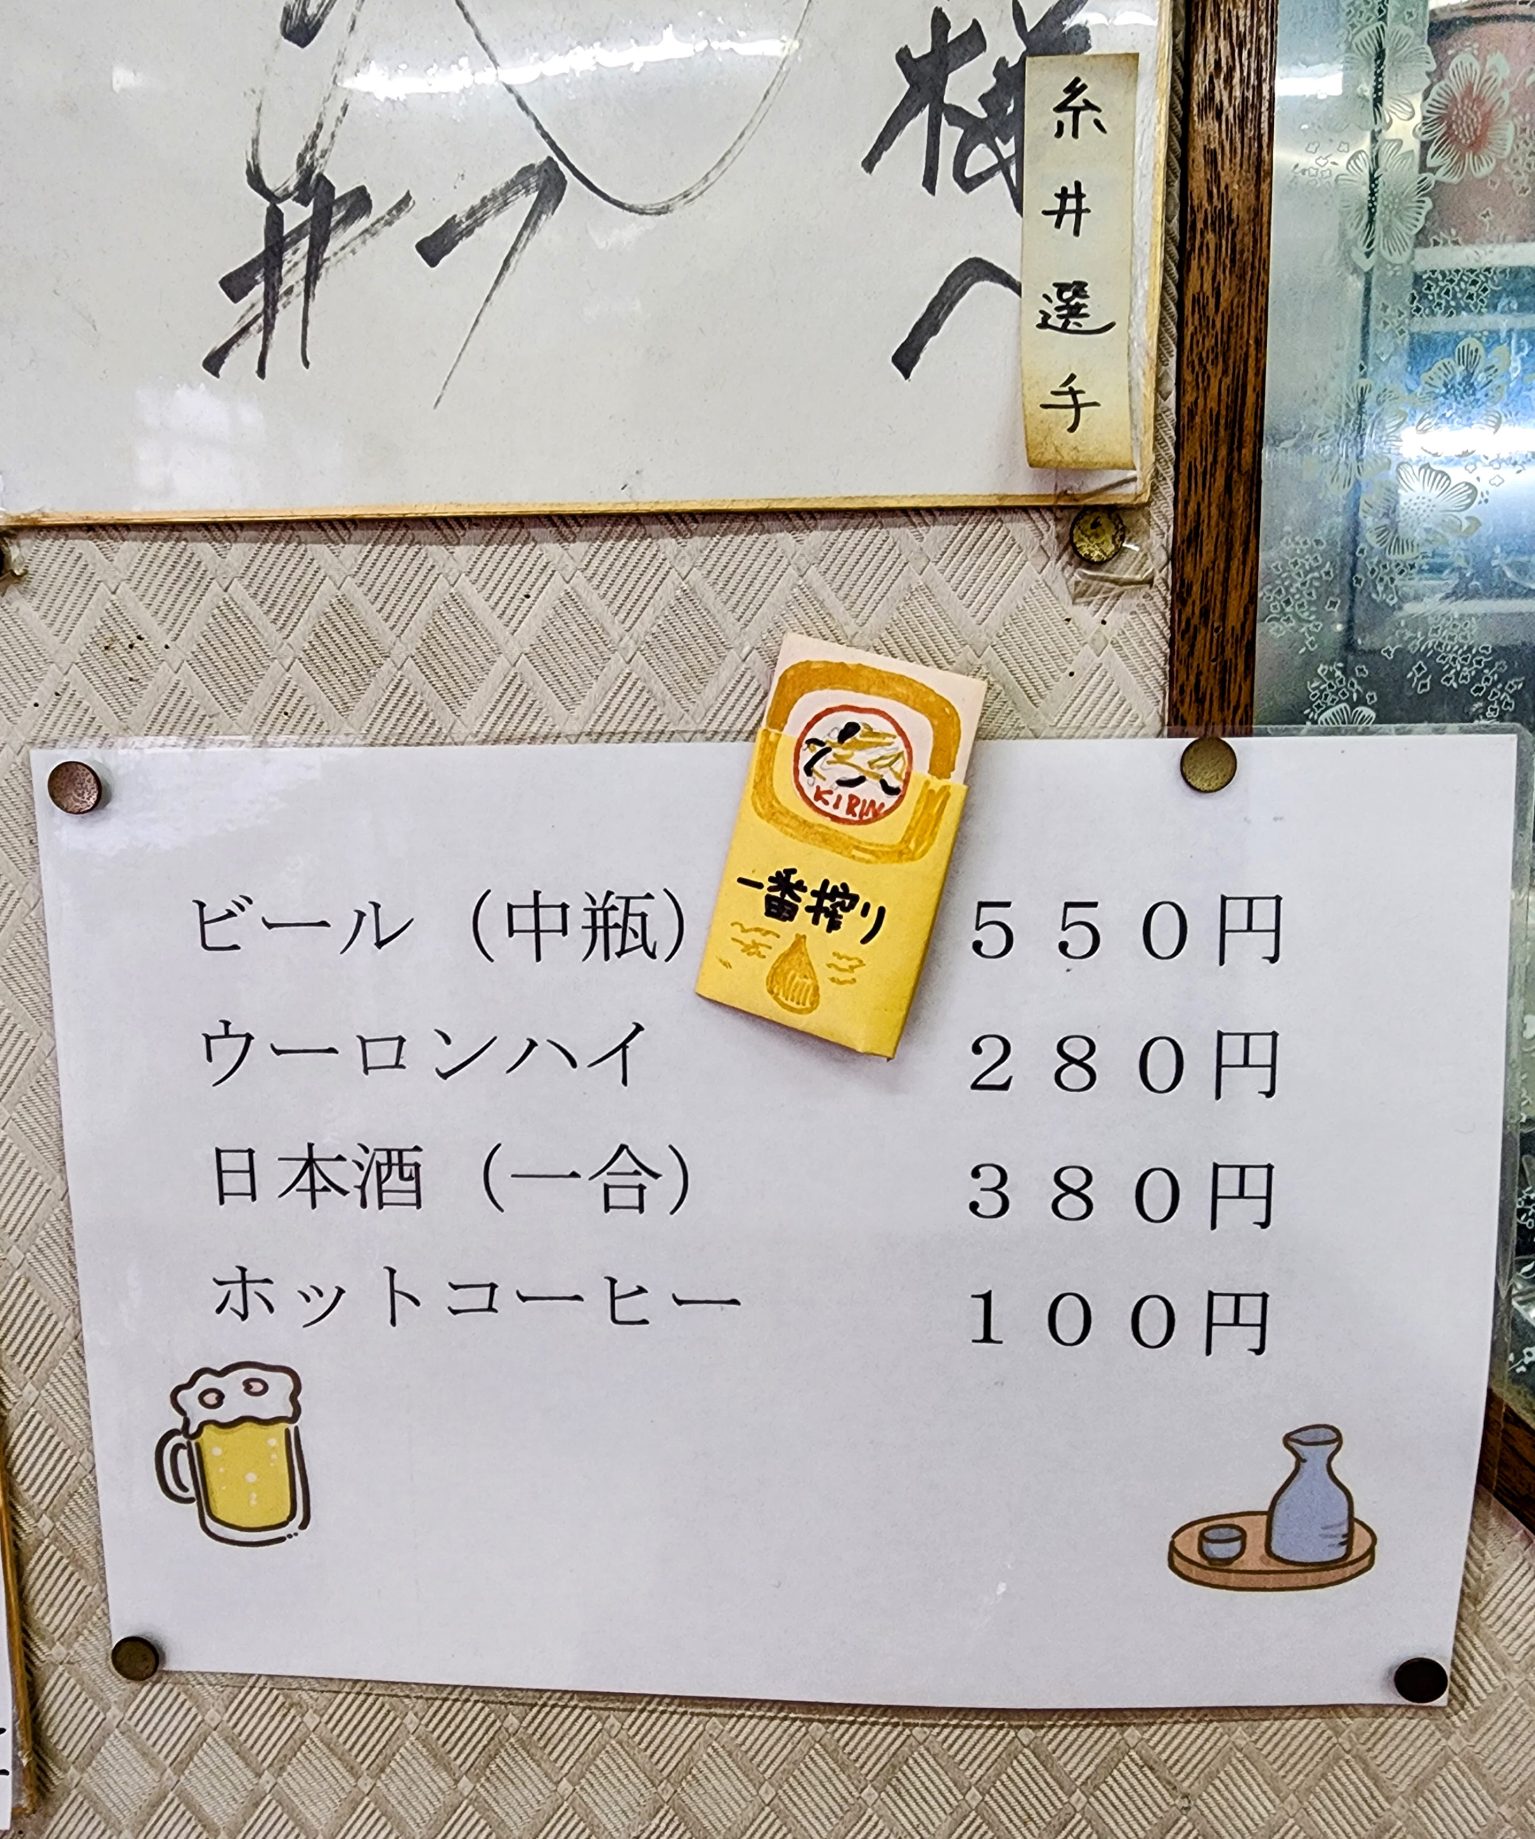 梅
へ
糸井選手
KIRIN
一番搾り
ビール（中瓶） ５５０円
ウーロンハイ ２８０円
日本酒（一合） ３８０円
ホットコーヒー １００円